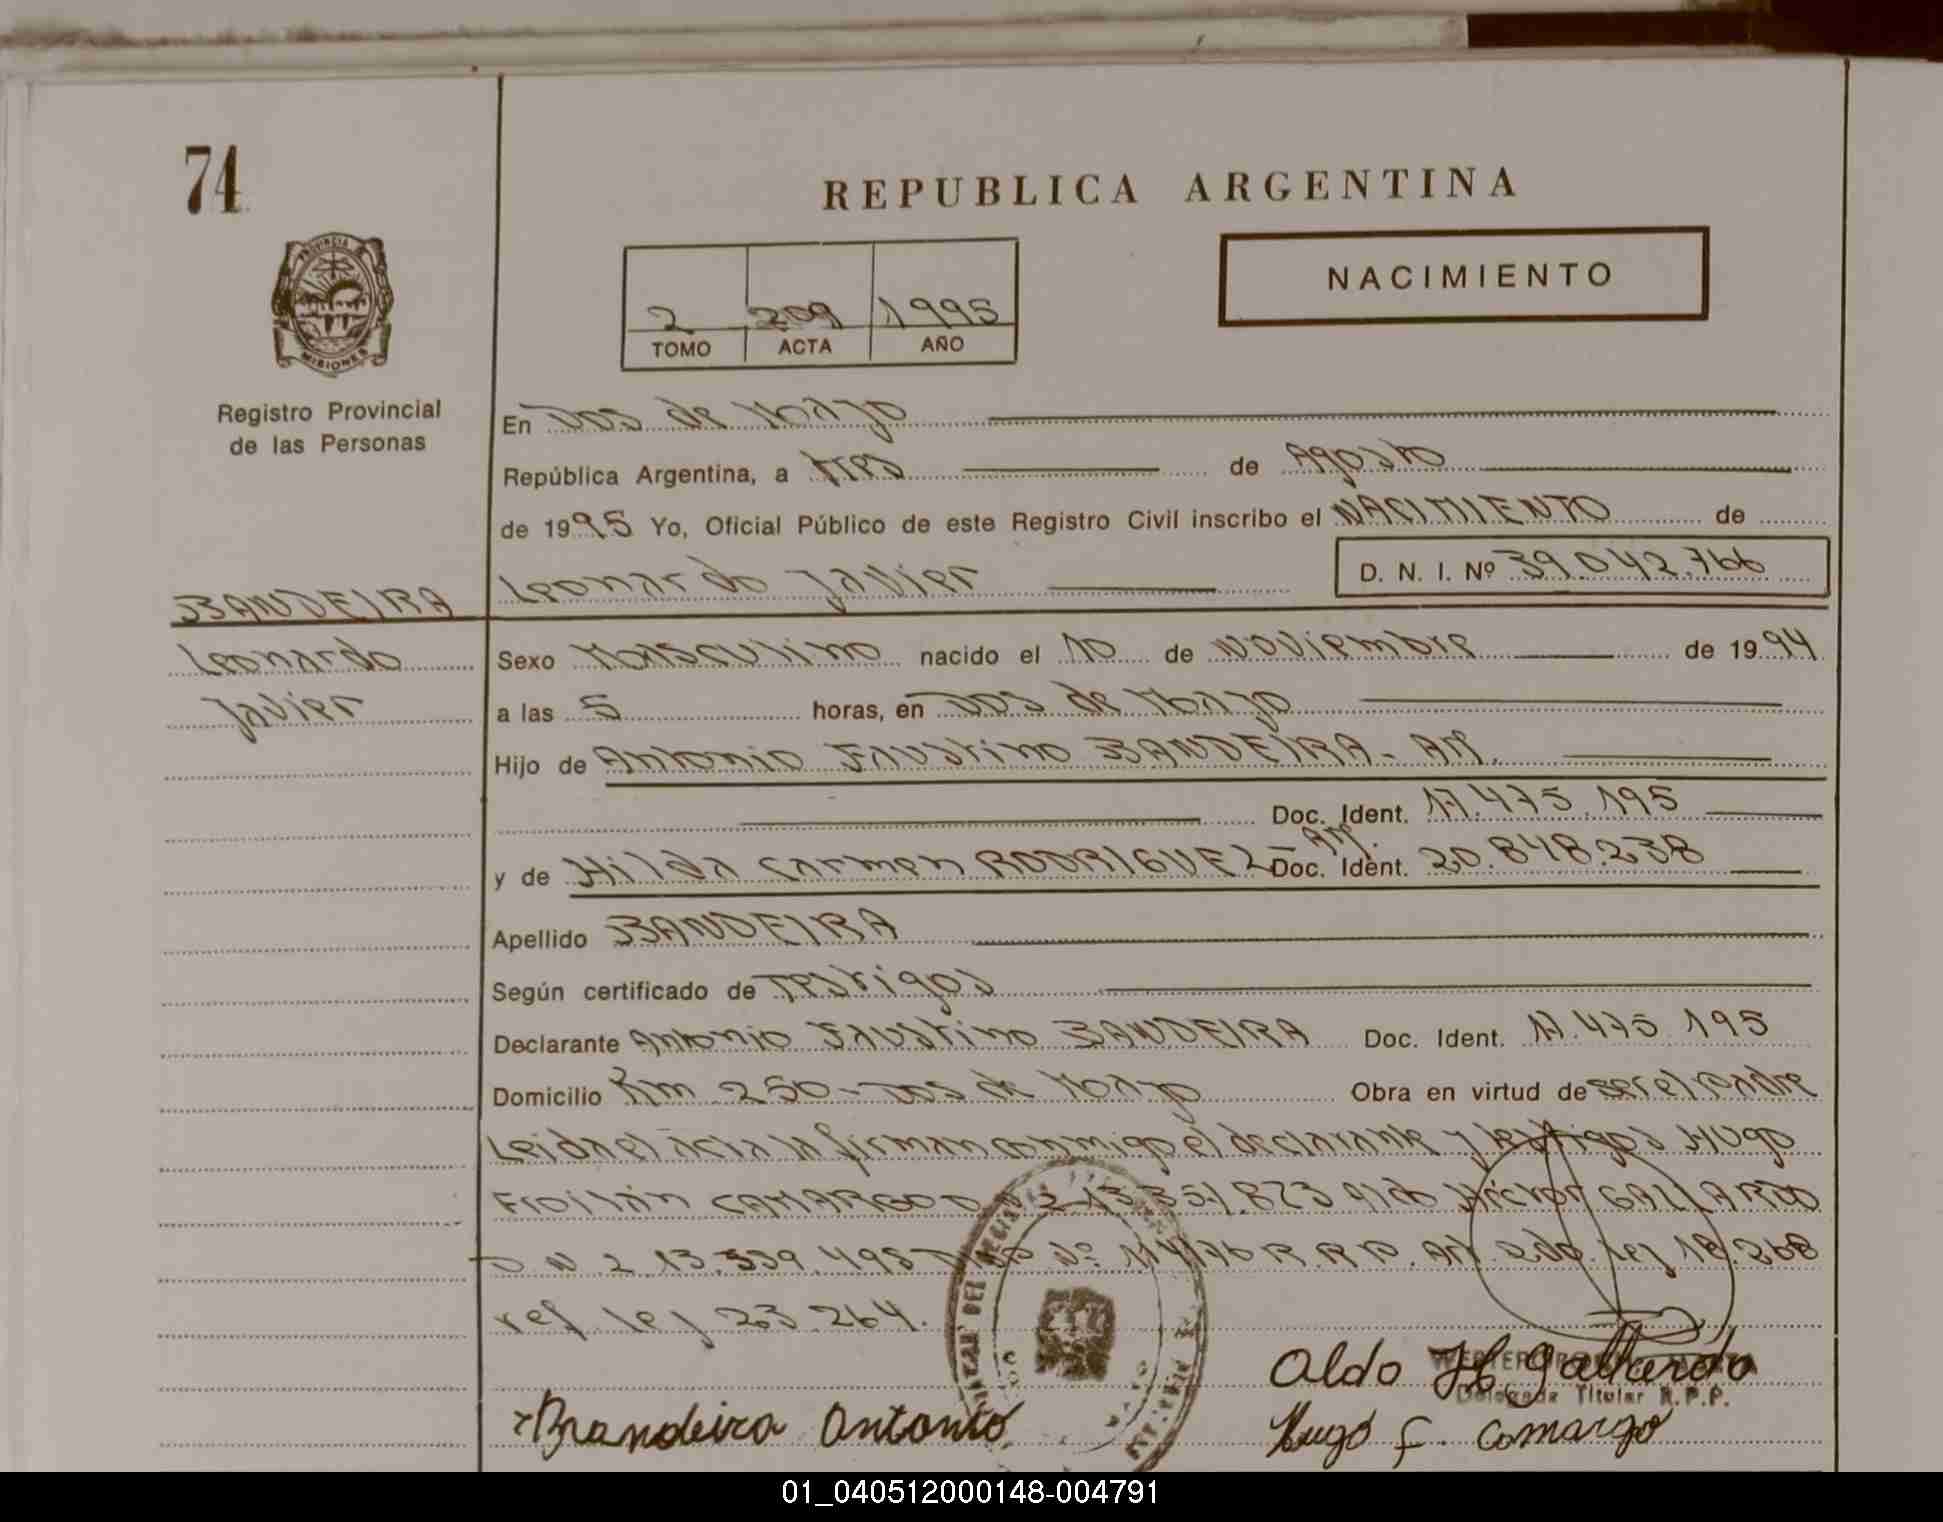 74
REPUBLICA ARGENTINA
NACIMIENTO
2 209 1995
TOMO ACTA AÑO
PROVINCIA DE MISIONES
Registro Provincial
de las Personas
En Dos de Mayo
República Argentina, a tres de Agosto
de 1995 Yo, Oficial Público de este Registro Civil inscribo el NACIMIENTO de
Leonardo Javier D. N. I. Nº 39.042.766
BANDEIRA
Leonardo
Javier
Sexo Masculino nacido el 10 de Noviembre de 1994
a las 5 horas, en Dos de Mayo
Hijo de Antonio Faustino BANDEIRA - Arg.
Doc. Ident. 17.475.195
y de Hilda Carmen RODRIGUEZ - Arg. Doc. Ident. 20.848.238
Apellido BANDEIRA
Según certificado de Testigos
Declarante Antonio Faustino BANDEIRA Doc. Ident. 17.475.195
Domicilio Km 250 - Dos de Mayo Obra en virtud de ser el padre
Leida el acta la firman conmigo el declarante y testigos Hugo
Froilán CAMARGO 13.351.873 Aldo Héctor GALLARDO
13.339.495 Nº R.P.P. Ley 18.268
ref ley 23.264.
Aldo H. Gallardo
Delegada Titular R.P.P.
Brandeira Antonio
Hugo F. Camargo
01_040512000148-004791